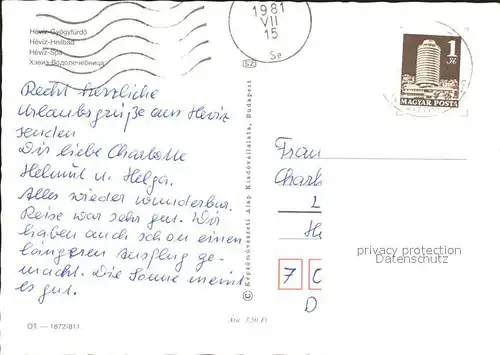 Hévíz-Gyógyfürdő
Hévíz-Heilbad
Hévíz-Spa
Хэвиз-Водолечебница
1981
VII
15
Se
SZ
1
Ft
MAGYAR POSTA
Recht herzliche
Urlaubsgrüße aus Héviz
senden
Dir liebe Charlotte
Helmut u. Helga.
Alles wieder wunderbar.
Reise war sehr gut. Wir
haben auch schon einen
längeren Ausflug ge-
macht. Die Sonne meint
es gut.
© Képzőművészeti Alap Kiadóvállalata, Budapest
Frau
Charl
L
He
7 C
D
privacy protection
Datenschutz
Ára 3,50 Ft
OT — 1872/811